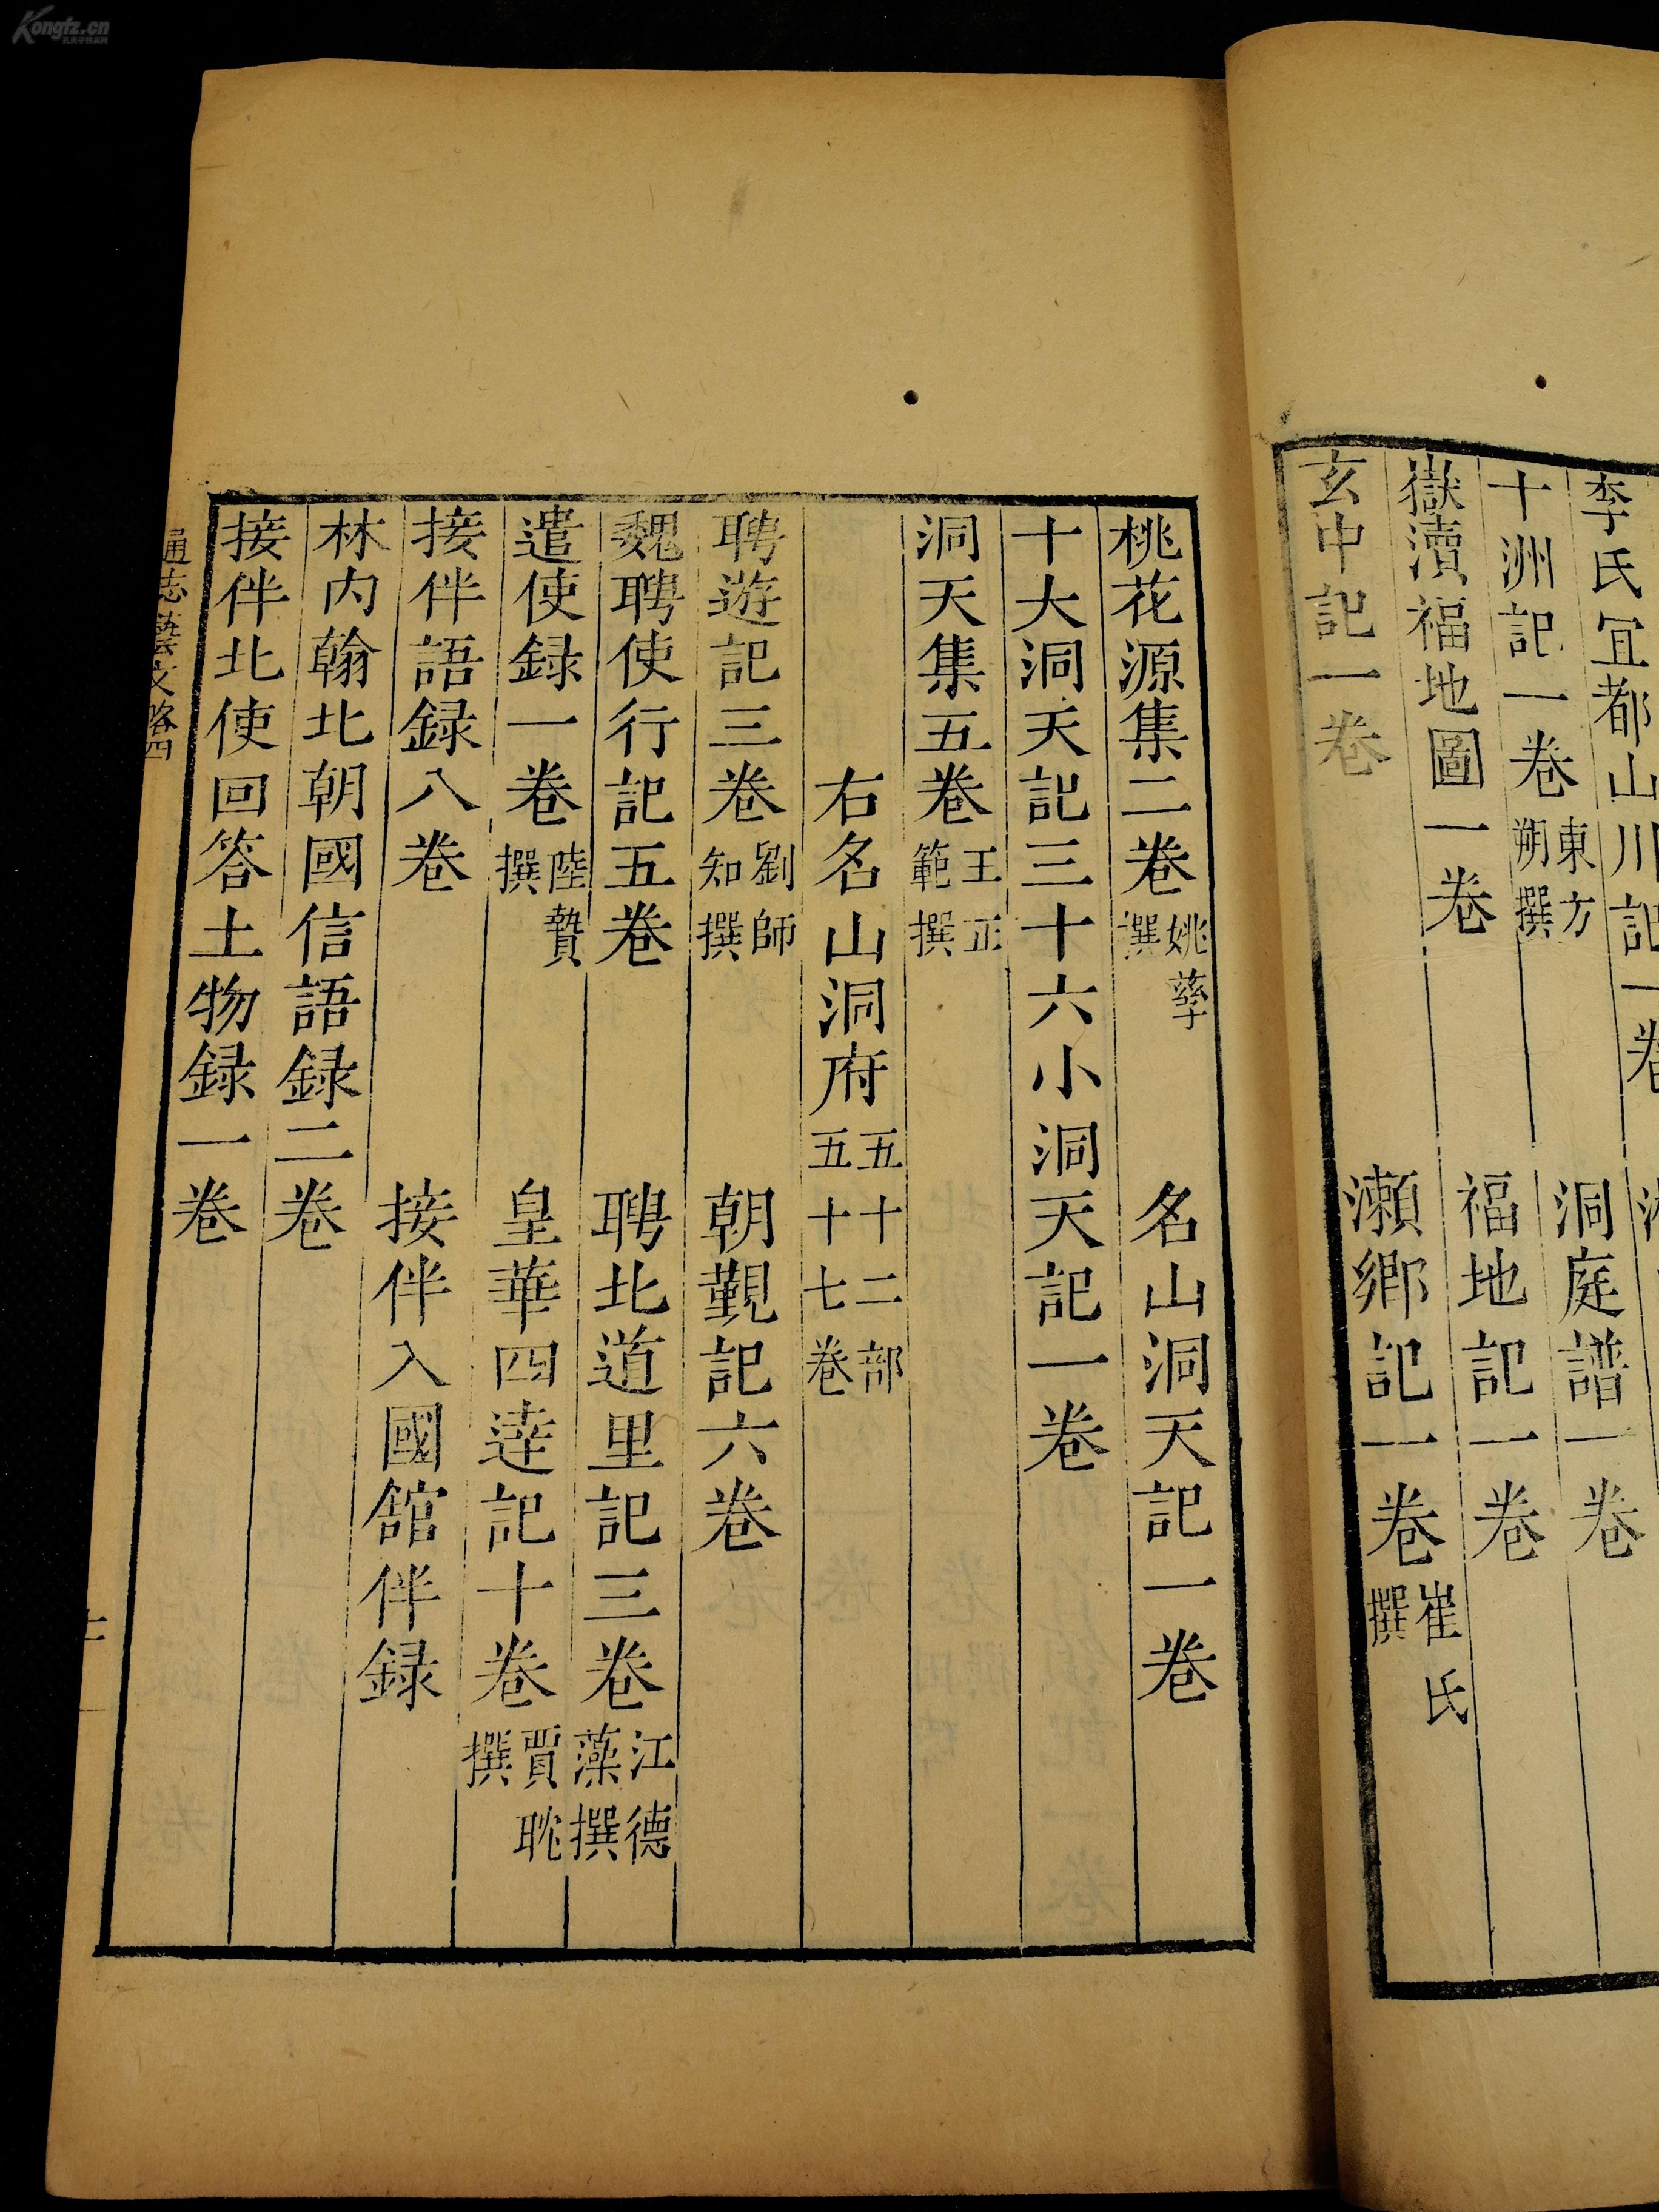 Kongfz.cn
李氏宜都山川記一卷
十洲記一卷 東方朔撰 洞庭譜一卷
嶽瀆福地圖一卷 福地記一卷
玄中記一卷 瀨鄉記一卷 崔氏撰
桃花源集二卷 姚孳撰 名山洞天記一卷
十大洞天記三十六小洞天記一卷
洞天集五卷 王正範撰
右名山洞府 五十二部五十七卷
聘遊記三卷 劉師知撰 朝覲記六卷
魏聘使行記五卷 聘北道里記三卷 江德藻撰
遣使録一卷 陸贄撰 皇華四逹記十卷 賈耽撰
接伴語録八卷 接伴入國舘伴録
林內翰北朝國信語録二卷
接伴北使回答土物録一卷
通志藝文略四